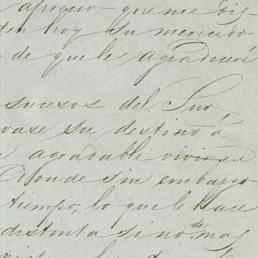 aprecio que me dis-
den hoy su merecido
de que le agradeceré
sucesos del Sur,
vase su destino á
agradable vivir en
Donde sin embargo
tiempo, lo que le hace
distinta si no de mas